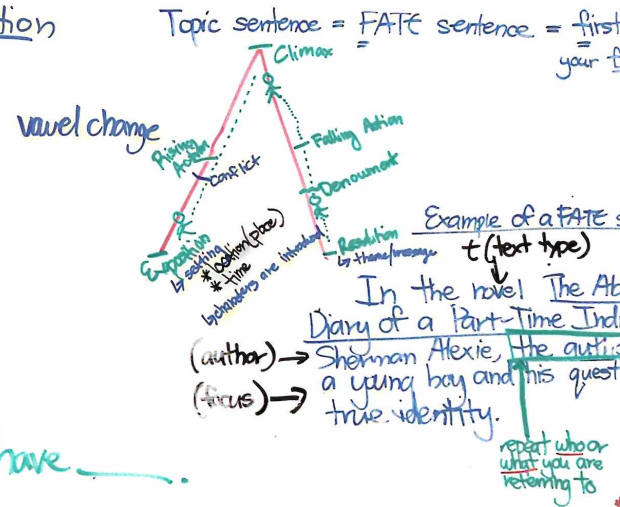 tion
Topic sentence = FATE sentence = first
your f
Climax
vowel change
Rising
Action
Conflict
Falling Action
Denoument
Exposition
↳ setting
* location (place)
* time
↳ characters are introduced
Resolution
↳ theme/message
Example of a FATE s
t (text type)
In the novel The Ab
Diary of a Part-Time Indi
(author) → Sherman Alexie, the auth
(focus) → a young boy and his quest
true identity.
have ____.
repeat who or
what you are
referring to